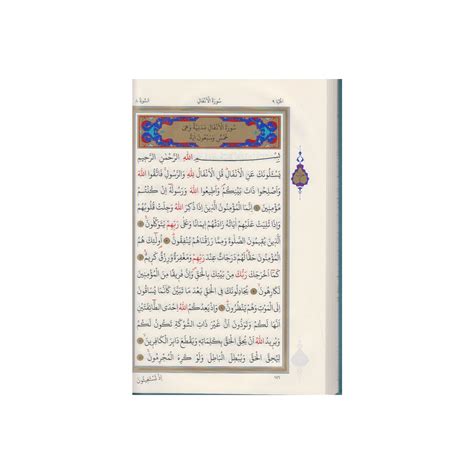 الجزء ٩ سُورَةُ الْاَنْفَالِ السورة ٨
سُورَةُ الْاَنْفَالِ مَدَنِيَّةٌ وَهِىَ
خَمْسٌ وَسَبْعُونَ اٰيَةً
بِسْمِ اللّٰهِ الرَّحْمٰنِ الرَّحِيمِ
يَسْـَٔلُونَكَ عَنِ الْاَنْفَالِ قُلِ الْاَنْفَالُ لِلّٰهِ وَالرَّسُولِ فَاتَّقُوا اللّٰهَ
وَاَصْلِحُوا ذَاتَ بَيْنِكُمْ وَاَطِيعُوا اللّٰهَ وَرَسُولَهُ اِنْ كُنْتُمْ
مُؤْمِنِينَ اِنَّمَا الْمُؤْمِنُونَ الَّذِينَ اِذَا ذُكِرَ اللّٰهُ وَجِلَتْ قُلُوبُهُمْ
وَاِذَا تُلِيَتْ عَلَيْهِمْ اٰيَاتُهُ زَادَتْهُمْ اِيمَانًا وَعَلٰى رَبِّهِمْ يَتَوَكَّلُونَ
اَلَّذِينَ يُقِيمُونَ الصَّلٰوةَ وَمِمَّا رَزَقْنَاهُمْ يُنْفِقُونَ اُولٰئِكَ هُمُ
الْمُؤْمِنُونَ حَقًّا لَهُمْ دَرَجَاتٌ عِنْدَ رَبِّهِمْ وَمَغْفِرَةٌ وَرِزْقٌ كَرِيمٌ
كَمَا اَخْرَجَكَ رَبُّكَ مِنْ بَيْتِكَ بِالْحَقِّ وَاِنَّ فَرِيقًا مِنَ الْمُؤْمِنِينَ
لَكَارِهُونَ يُجَادِلُونَكَ فِى الْحَقِّ بَعْدَ مَا تَبَيَّنَ كَاَنَّمَا يُسَاقُونَ
اِلَى الْمَوْتِ وَهُمْ يَنْظُرُونَ وَاِذْ يَعِدُكُمُ اللّٰهُ اِحْدَى الطَّائِفَتَيْنِ
اَنَّهَا لَكُمْ وَتَوَدُّونَ اَنَّ غَيْرَ ذَاتِ الشَّوْكَةِ تَكُونُ لَكُمْ
وَيُرِيدُ اللّٰهُ اَنْ يُحِقَّ الْحَقَّ بِكَلِمَاتِهِ وَيَقْطَعَ دَابِرَ الْكَافِرِينَ
لِيُحِقَّ الْحَقَّ وَيُبْطِلَ الْبَاطِلَ وَلَوْ كَرِهَ الْمُجْرِمُونَ
١٧٦ اِذْ تَسْتَغِيثُونَ